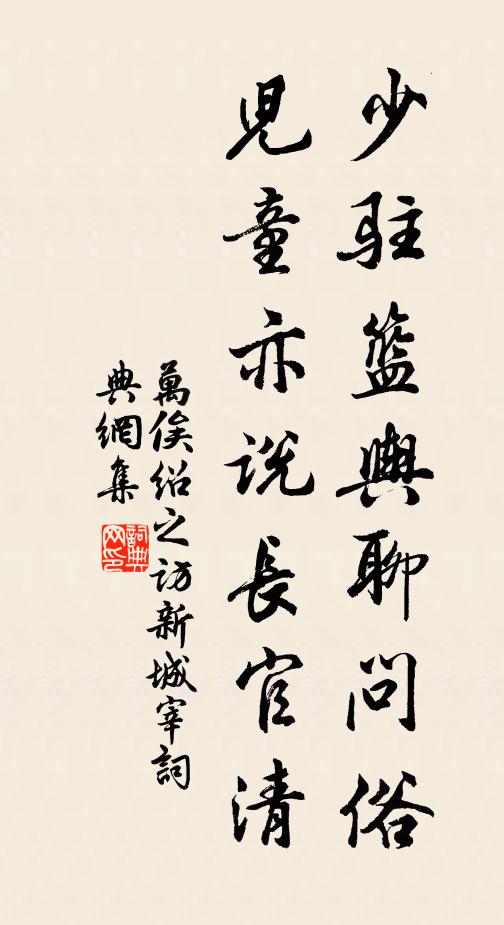 少駐籃輿聊問俗
兒童亦說長官清
萬俟紹之訪新城宰詞
典網集
詞典
网印